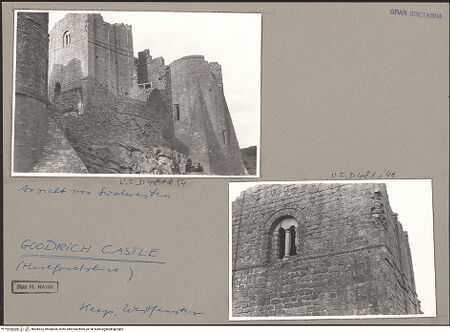 GRAN BRETAGNA
U.I.D 481 n 46
Ansicht von Südwesten
GOODRICH CASTLE
(Herefordshire)
Foto H. HAHN
Keep, Westfenster